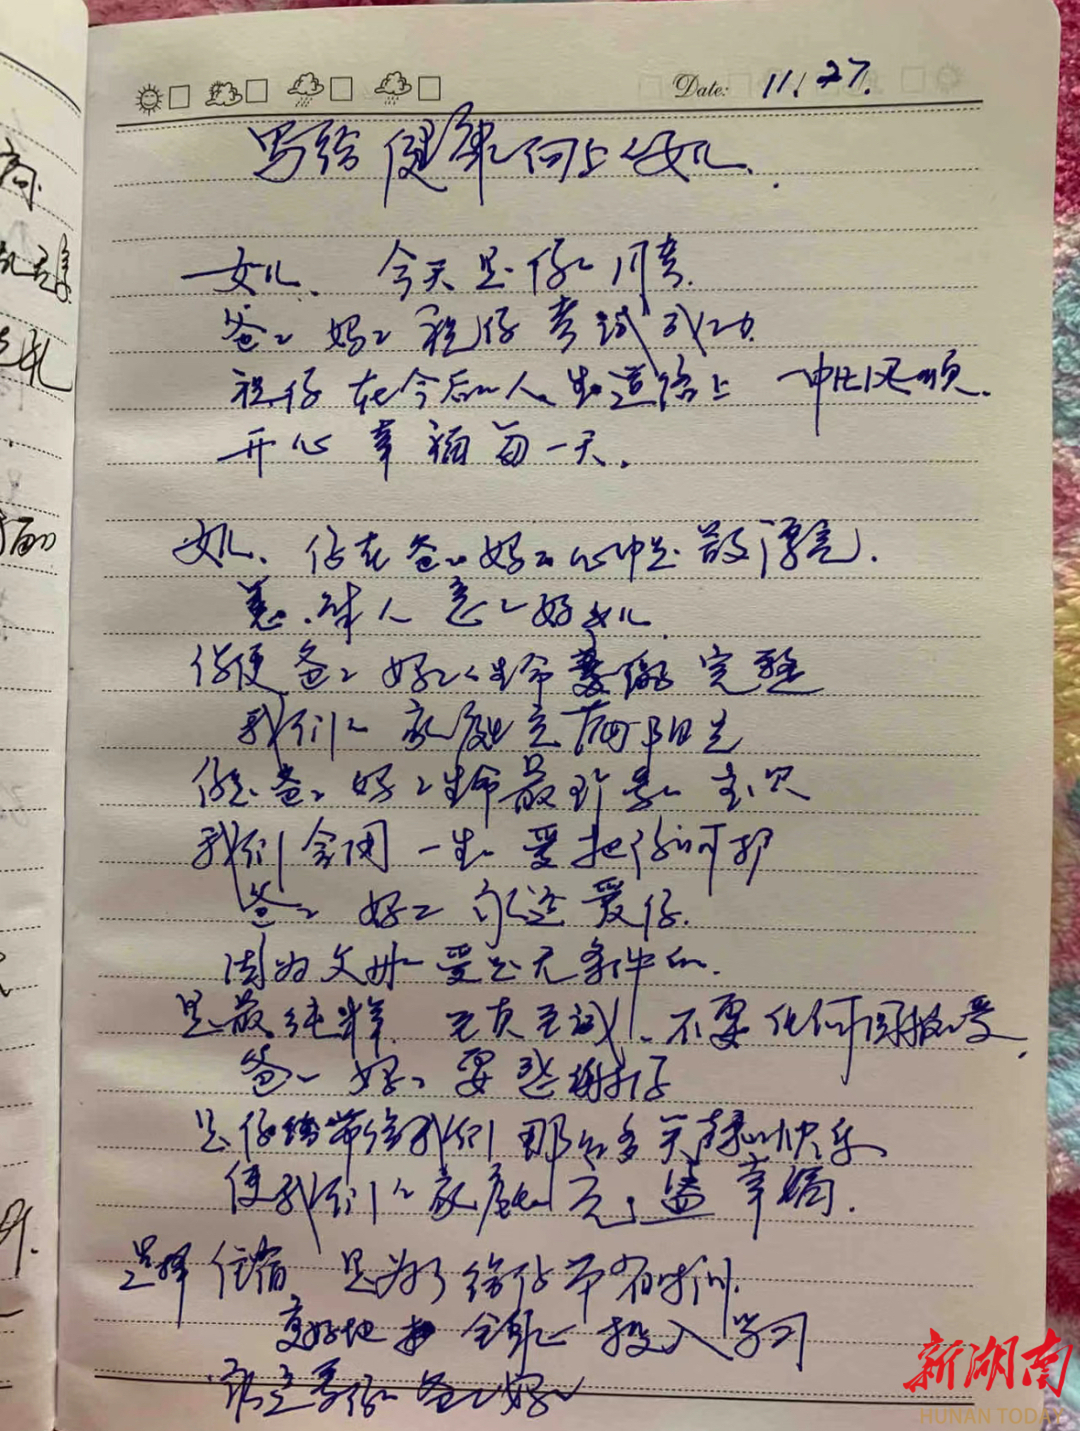 Date: 11.27.
写给健康向上的女儿.
女儿、今天是你的月考.
爸爸妈妈祝你考试成功
祝你在今后的人生道路上 一帆风顺.
开心幸福每一天.
女儿、你在爸爸妈妈心中是最漂亮.
善 人意的好女儿
你使爸爸妈妈的生命更加完整
我们的家庭充满阳光
你是爸爸妈妈生命最珍贵的宝贝
我们会用一生的爱把你呵护
爸爸妈妈永远爱你.
因为父母的爱是无条件的.
是最纯粹、无 不要任何回报的爱,
爸爸妈妈要感谢你
是你给带给我们那么多 快乐
使我们的家庭 充盈幸福.
选择住宿 是为了给你节省时间.
更好地 全身心投入学习
永远爱你的爸爸妈妈
新湖南
HUNAN TODAY